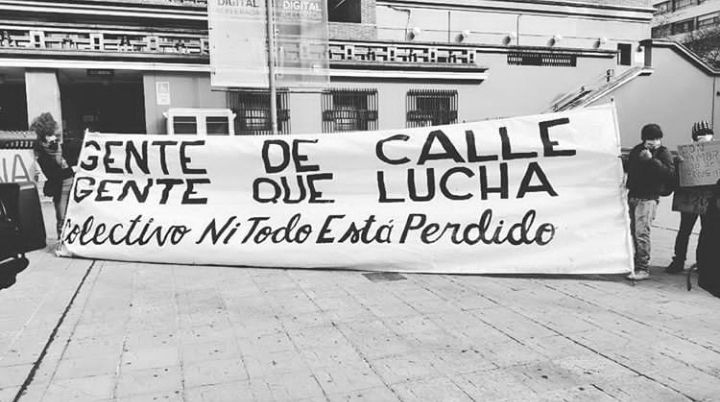 DIGITAL
DIGITAL
GENTE DE CALLE
GENTE QUE LUCHA
Colectivo Ni Todo Está Perdido